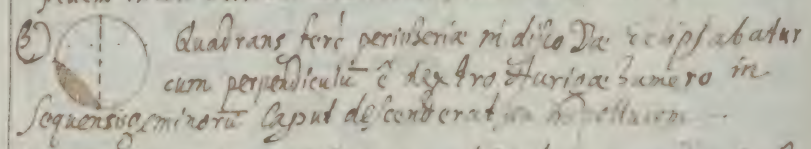 3 Quadrans ferè periferiæ in disco Dæ eclipsabatur
cum perpendiculū è dextro Aurigæ humero in
sequens geminorū Caput descenderat